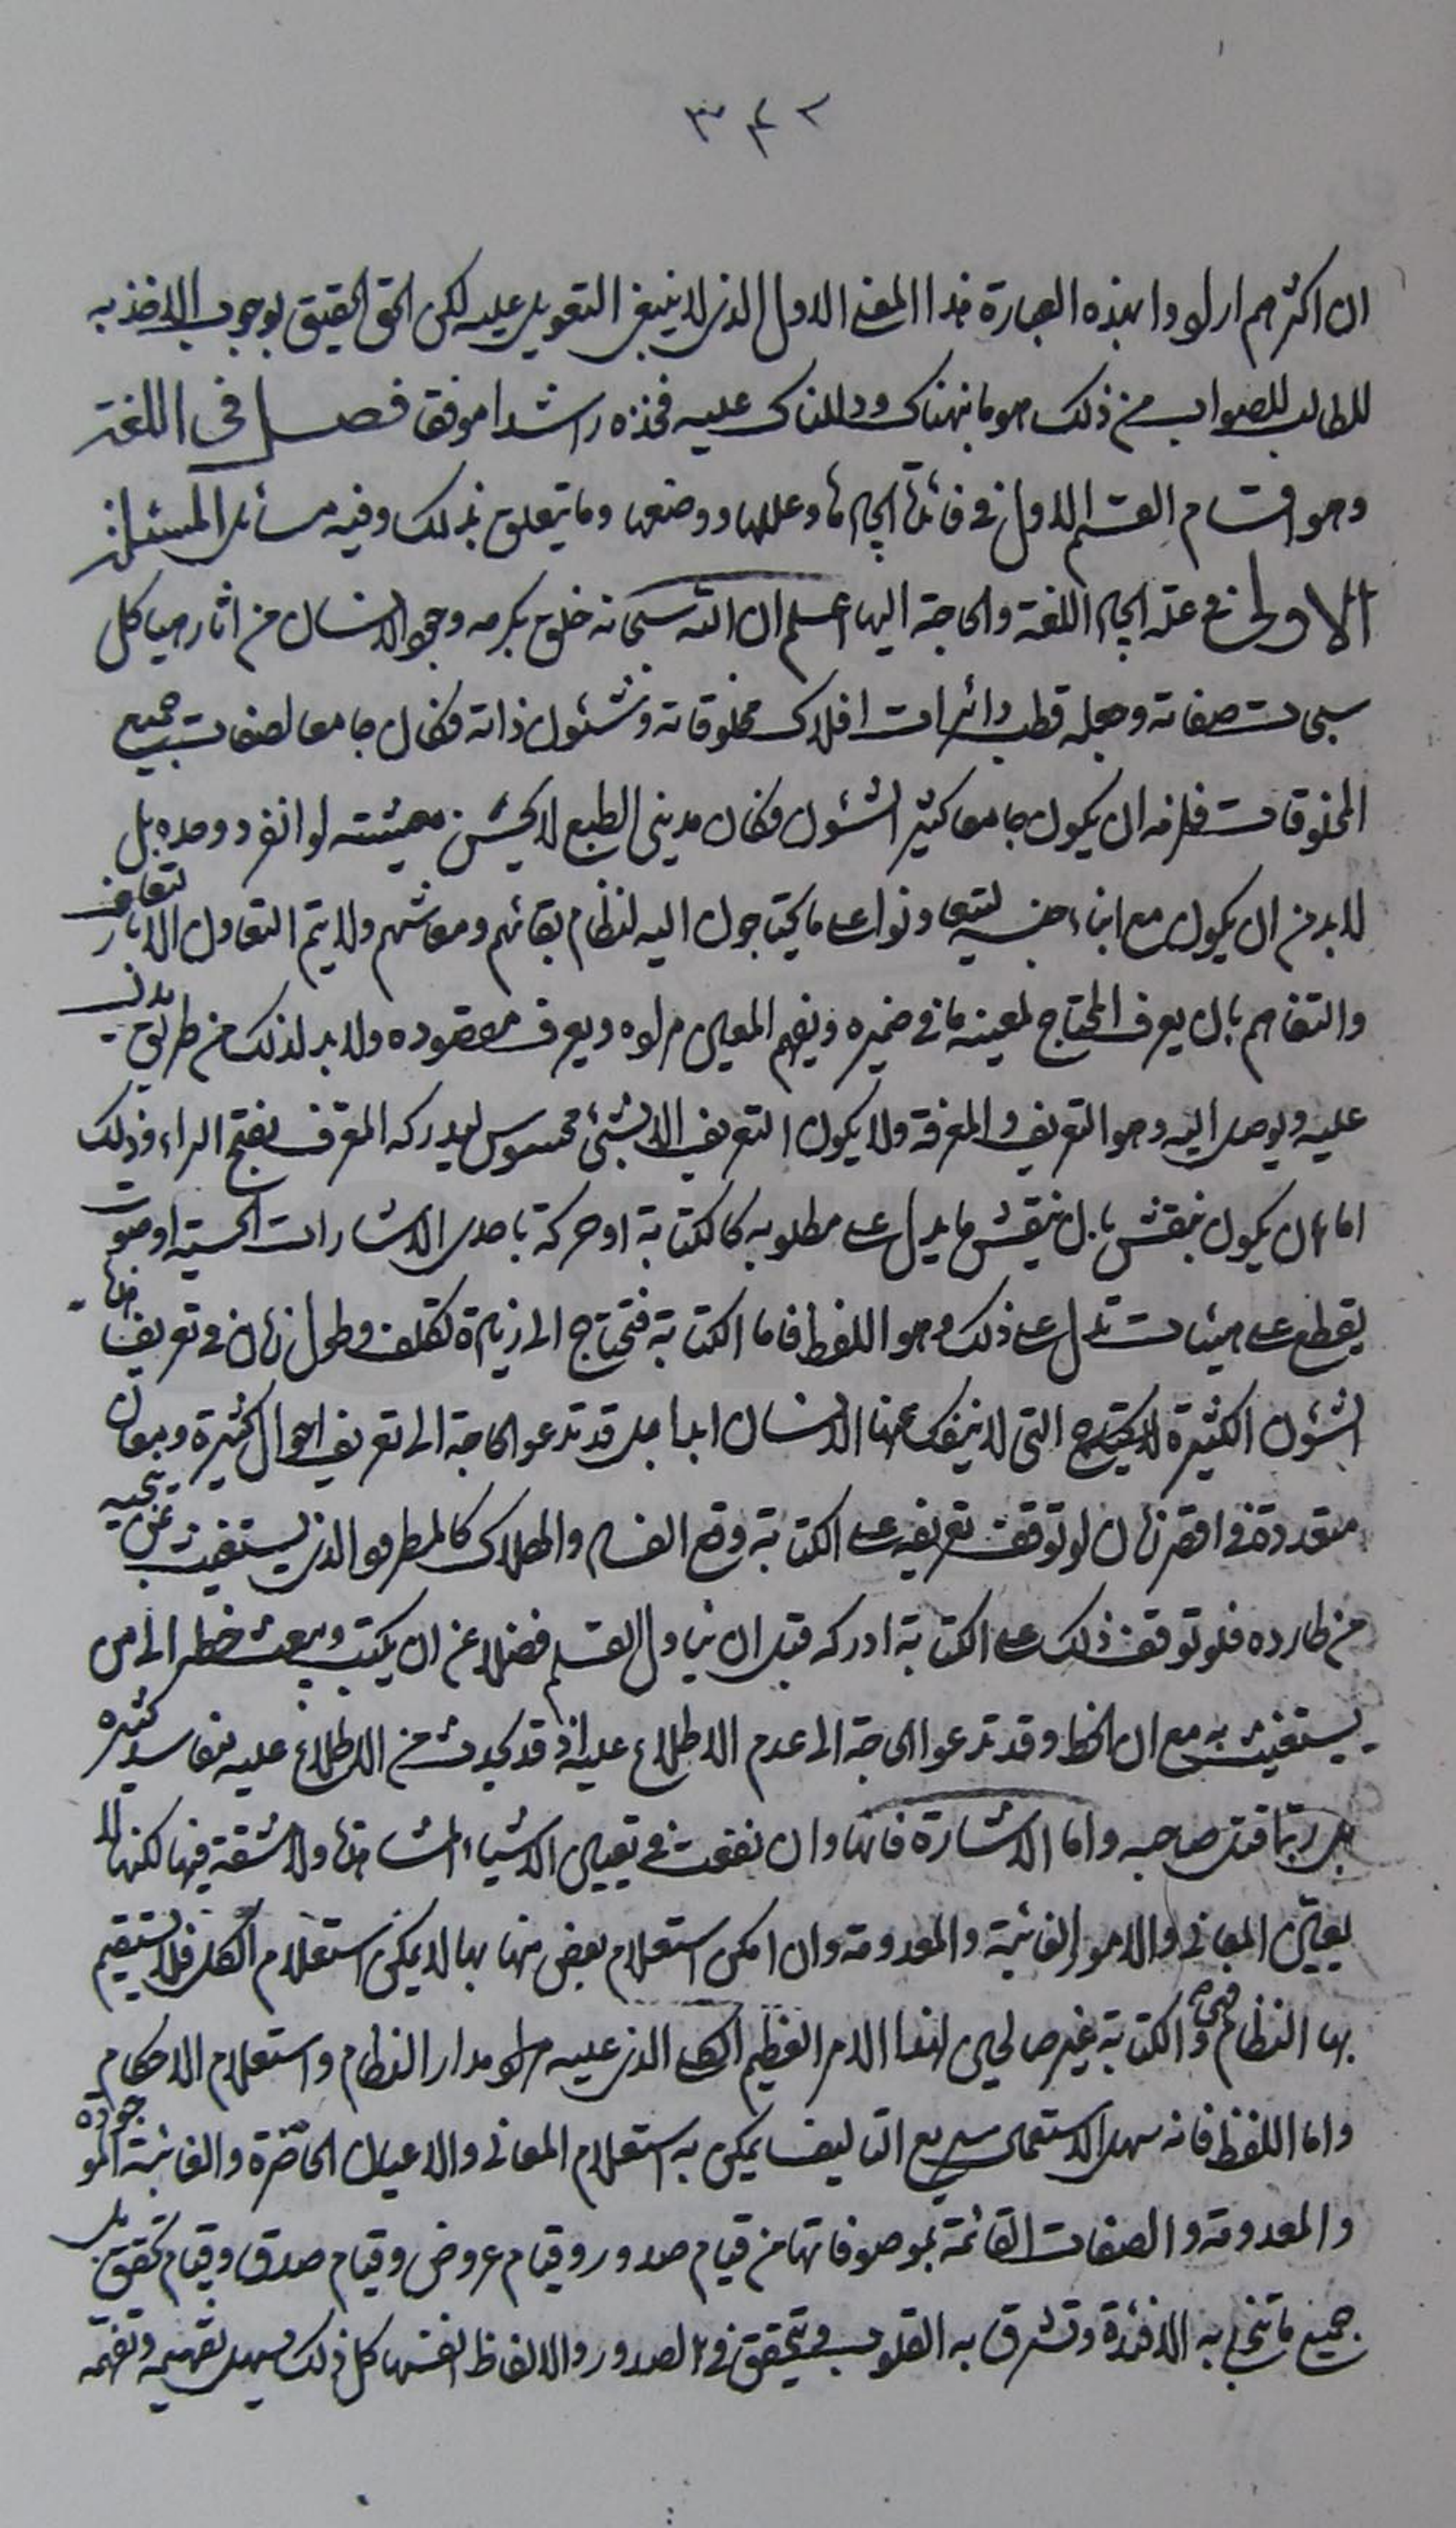 ٣٤٢
ان اكثرهم ارادوا بهذه العبارة هذا المعنى الاول الذى لا ينبغى التعويل عليه لكن الحق الحقيق بوجوب الاخذ به
للطالب للصواب من ذلك هو ما نبهناك ودللناك عليه فخذه راشدا موفقا فصل فى اللغة
وهو اقسام القسم الاول فى فائدة ايجادها وعللها ووضعها وما يتعلق بذلك وفيه مسائل المسئلة
الاولى فى علة ايجاد اللغة والحاجة اليها اعلم ان الله سبحانه خلق بكرمه وجود الانسان من اثار هياكل
سبحات صفاته وجعله قطب دائرات افلاك مخلوقاته وشئون ذاته فكان جامعا لصفات جميع
المخلوقات فلزمه ان يكون جامعا كثير الشئون فكان مدينى الطبع لا يحسن معيشته لو انفرد وحده بل
لابد من ان يكون مع ابناء جنسه ليتعاونوا على ما يحتاجون اليه لنظام بقائهم ومعاشهم ولا يتم التعاون الا بالتعارف
والتفاهم بان يعرف المحتاج لمعينه ما فى ضميره ويفهم المعين مراده ويعرف مقصوده ولابد لذلك من طريق يدل
عليه ويوصل اليه وهو التعريف والمعرفة ولا يكون التعريف الا بشئ محسوس ليدركه المعرف بفتح الراء وذلك
اما ان يكون بنقش بان ينقش ما يدل على مطلوبه كالكتابة او حركة باحدى الاشارات الحسية او صوت
يقطع على هيئات تدل على ذلك وهو اللفظ فاما الكتابة فتحتاج الى زيادة تكلف وطول زمان فى تعريفها
الشئون الكثيرة التى لا ينفك عنها الانسان ابدا بل قد تدعو الحاجة الى تعريف احوال كثيرة ومعان
متعددة فى اقصر زمان لو توقف تعريفه على الكتابة وقع الفساد والهلاك كالمطرود الذى يستغيث بمن ينجيه
من طارده فلو توقف ذلك على الكتابة ادركه قبل ان يناول القلم فضلا عن ان يكتب ويبعث خطه الى من
يستغيث به مع ان الخط قد تدعو الحاجة الى عدم الاطلاع عليه اذ قد يحدث من الاطلاع عليه مفاسد كثيرة
بل ربما قتل صاحبه واما الاشارة فانها وان نفعت فى تعيين الاشياء المشاهدة ولا مشقة فيها لكنها لا
يعين المعانى والامور الغائبة والمعدومة وان امكن استعلام بعض منها بها لا يمكن استعلام الكل فلا يستقيم
بها النظام فهى والكتابة غير صالحين لهذا الامر العظيم الكلى الذى عليه مدار النظام واستعلام الاحكام
واما اللفظ فانه سهل الاستعمال سريع التاليف يمكن به استعلام المعانى والاعيان الحاضرة والغائبة الموجودة
والمعدومة والصفات القائمة بموصوفاتها من قيام صدور وقيام عروض وقيام صدق وقيام تحقق بل
جميع ما تنجلى به الافئدة وتشرق به القلوب ويتحقق فى الصدور والالفاظ انفسها كل ذلك يسهل تفهيمه وتفهمه